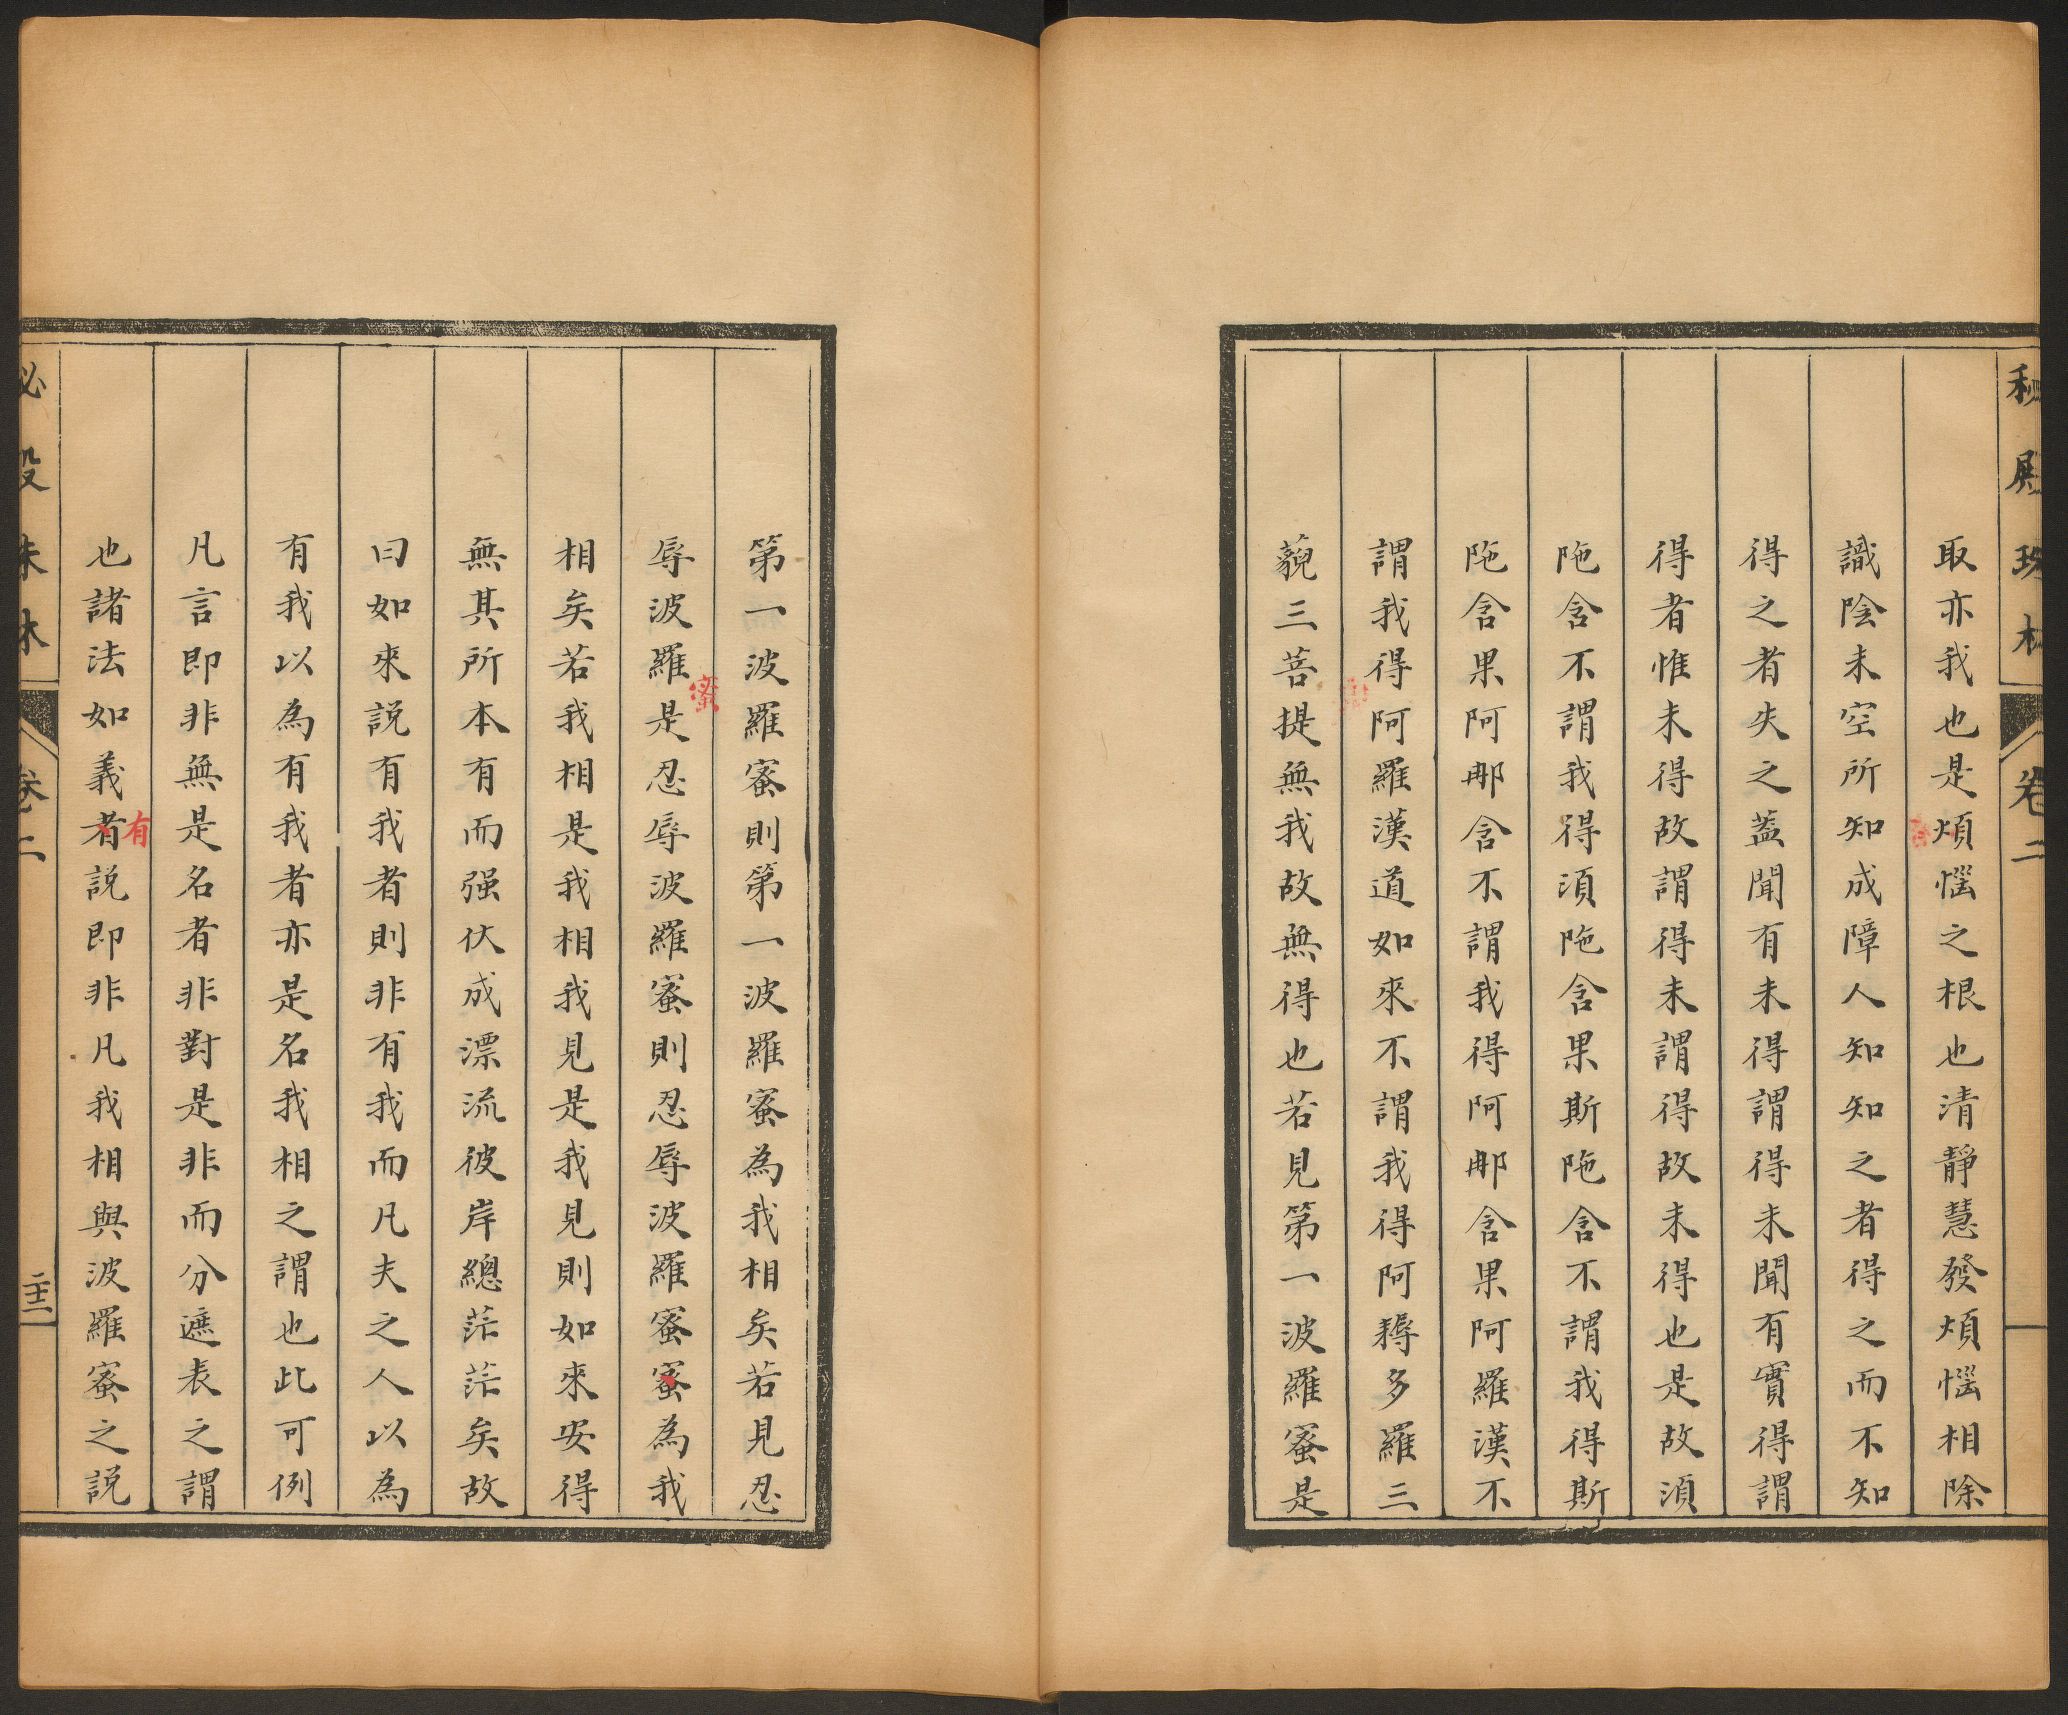 秘殿珠林 卷二
取亦我也是煩惱之根也清靜慧發煩惱相除
識陰未空所知成障人知知之者得之而不知
得之者失之蓋聞有未得謂得未聞有實得謂
得者惟未得故謂得未謂得故未得也是故須
陁含不謂我得須陁含果斯陁含不謂我得斯
陁含果阿那含不謂我得阿那含果阿羅漢不
謂我得阿羅漢道如來不謂我得阿耨多羅三
藐三菩提無我故無得也若見第一波羅蜜是
第一波羅蜜則第一波羅蜜為我相矣若見忍
辱波羅是忍辱波羅蜜則忍辱波羅蜜蜜為我
蜜
相矣若我相是我相我見是我見則如來安得
無其所本有而强伏成漂流彼岸總茫茫矣故
曰如來説有我者則非有我而凡夫之人以為
有我以為有我者亦是名我相之謂也此可例
凡言即非無是名者非對是非而分遮表之謂
也諸法如義者説即非凡我相與波羅蜜之説
有
秘殿珠林 卷二 二十三